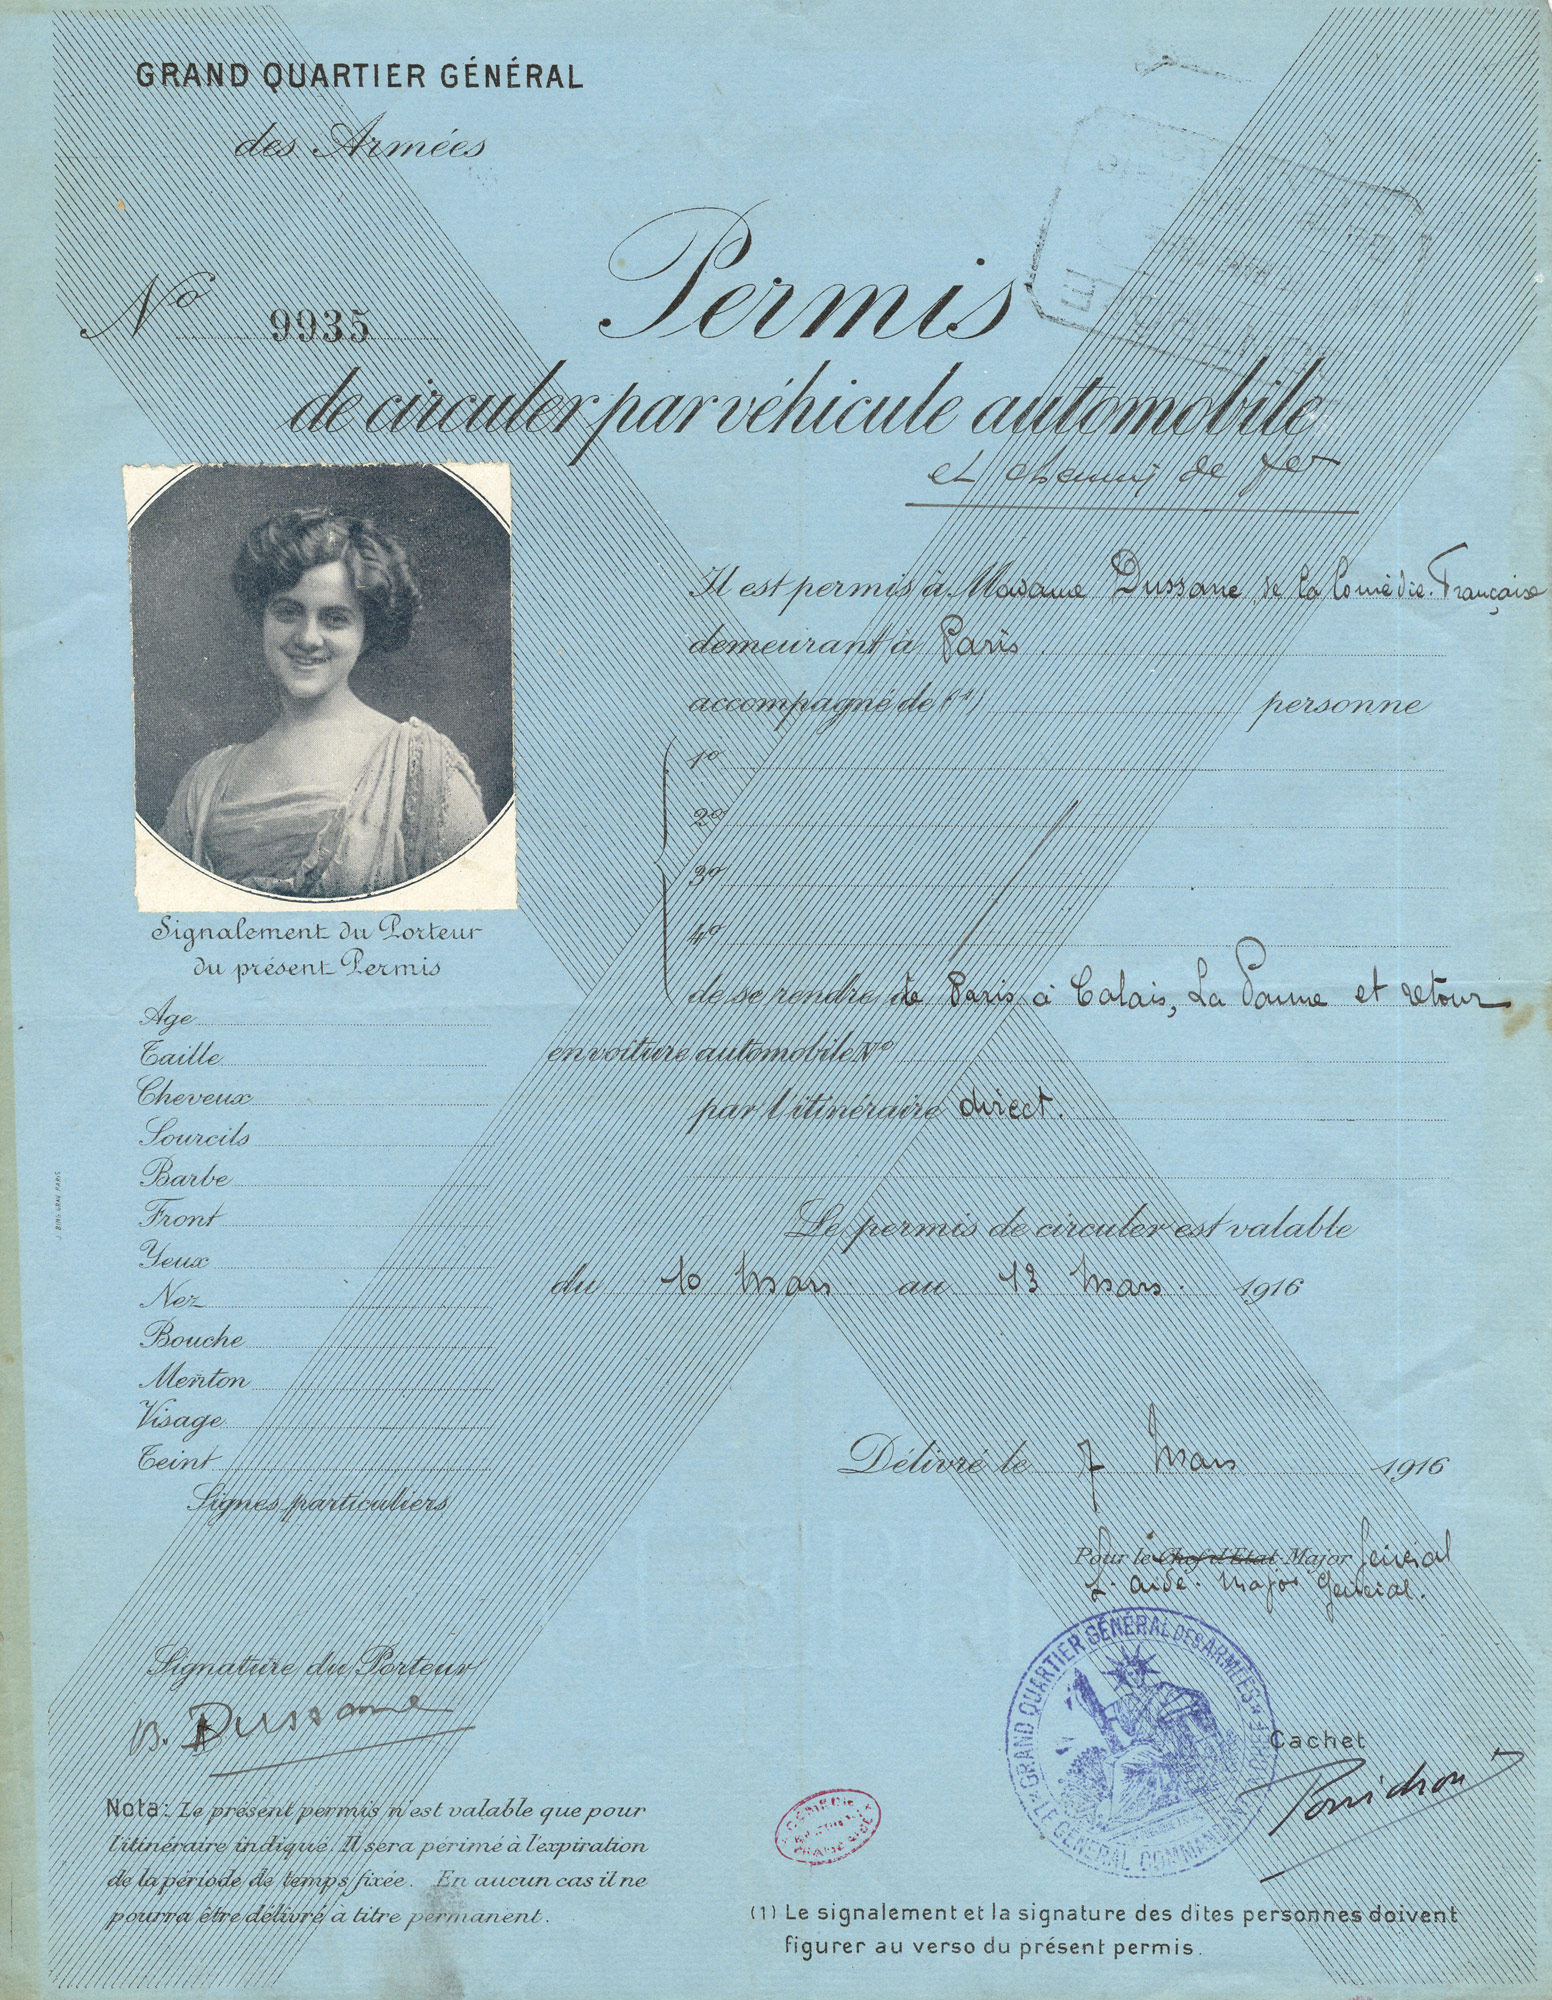 GRAND QUARTIER GÉNÉRAL
des Armées
No 9935
Permis
de circuler par véhicule automobile
et chemin de fer
Il est permis à Madame Dussane de la Comédie-Française
demeurant à Paris
accompagné de (1) personne
1o
2o
3o
4o
de se rendre de Paris à Calais, La Panne et retour
en voiture automobile No
par l'itinéraire direct.
Le permis de circuler est valable
du 10 Mars au 13 Mars. 1916
Délivré le 7 Mars 1916
Pour le Chef d'Etat Major Général
L'aide-Major Général.
Signalement du Porteur
du présent Permis
Age
Taille
Cheveux
Sourcils
Barbe
Front
Yeux
Nez
Bouche
Menton
Visage
Teint
Signes particuliers
Signature du Porteur
B. Dussane
GRAND QUARTIER GÉNÉRAL DES ARMÉES
LE GÉNÉRAL COMMANDANT
Cachet
Nota: Le présent permis n'est valable que pour
l'itinéraire indiqué. Il sera périmé à l'expiration
de la période de temps fixée. En aucun cas il ne
pourra être délivré à titre permanent.
(1) Le signalement et la signature des dites personnes doivent
figurer au verso du présent permis.